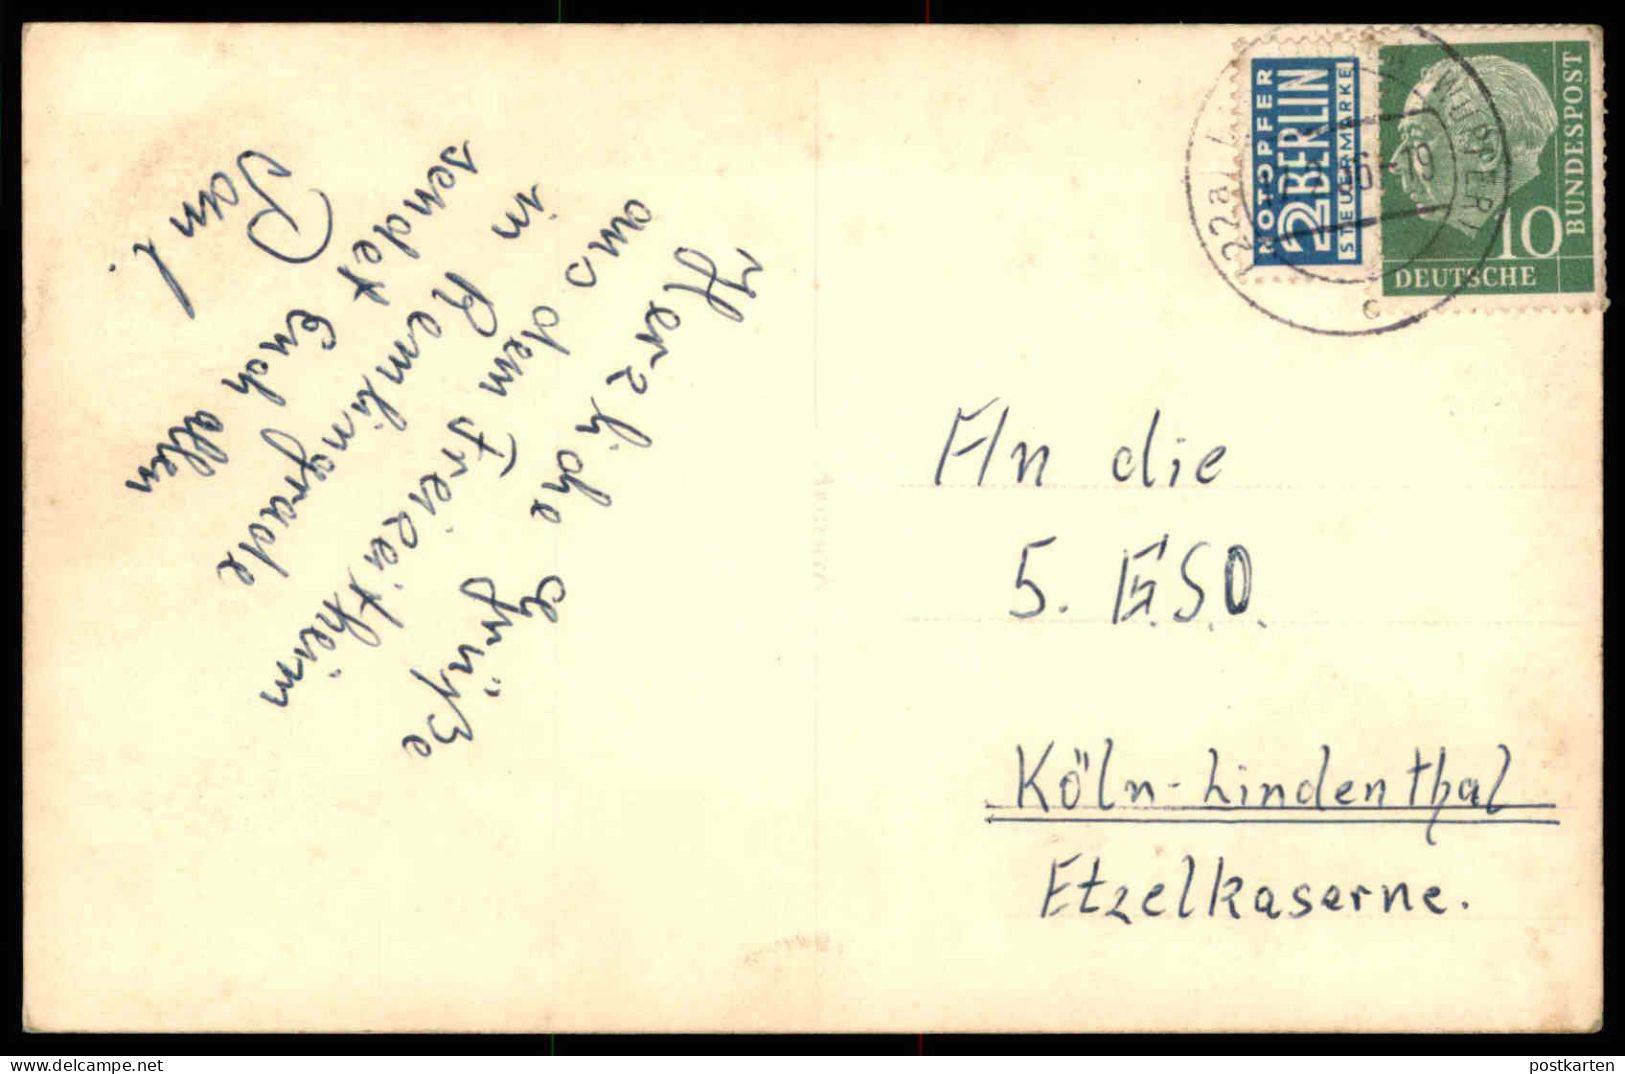 Herzliche Grüße
aus dem Freizeitheim
in Remlingrade
sendet Euch allen
Paul.
NOTOPFER
2 BERLIN
STEUERMARKE
(22a)
WUPPER)
-19
c
10
DEUTSCHE
BUNDESPOST
An die
5. E.S.O.
Köln-Lindenthal
Etzelkaserne.
postkarten